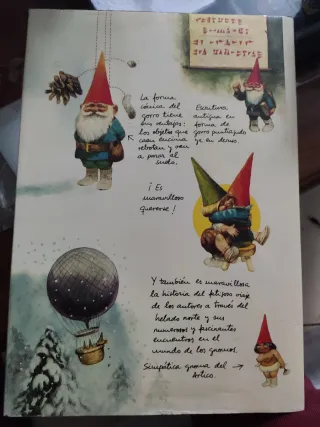 La forma
cónica del
gorro tiene
sus ventajas:
los objetos que
caen encima
rebotan y van
a parar al
suelo.
Escritura
antigua en
forma de
gorro puntiagudo
ya en desuso.
¡Es
maravilloso
quererse!
Y también es maravillosa
la historia del fatigoso viaje
de los autores a través del
helado norte y sus
numerosos y fascinantes
encuentros en el
mundo de los gnomos.
Simpática gnoma del
Artico.